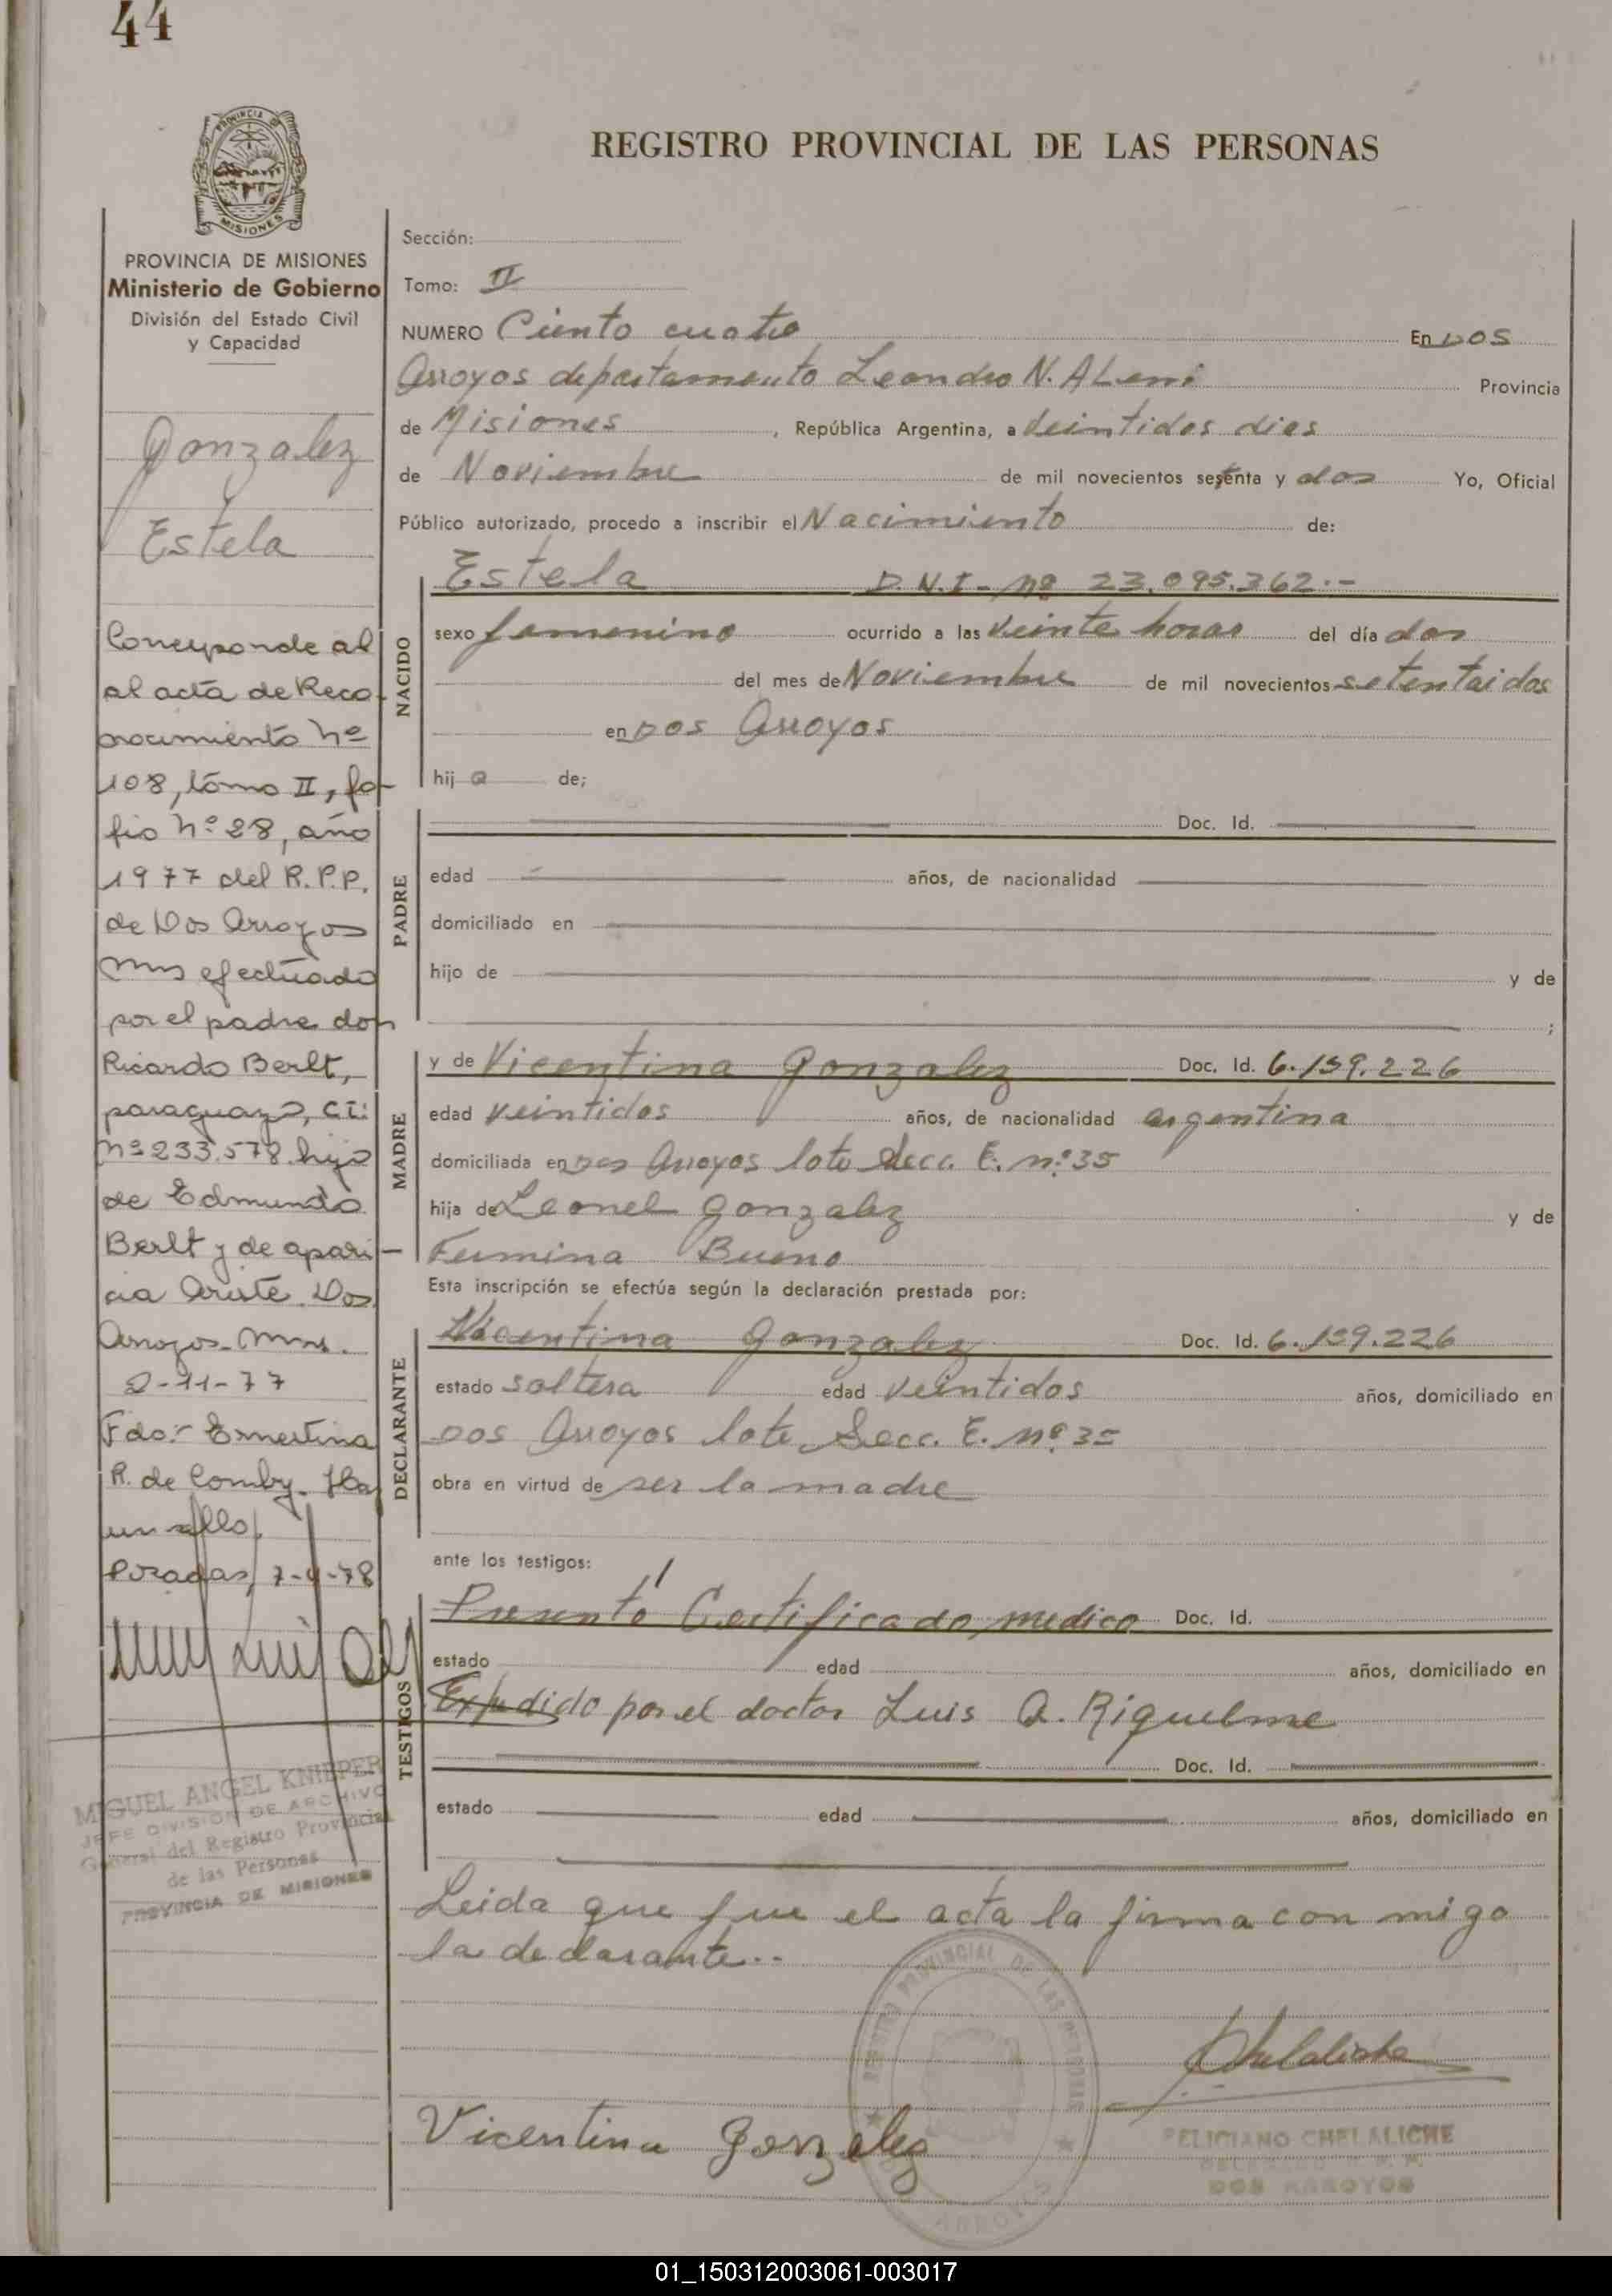 44
PROVINCIA DE
MISIONES
REGISTRO PROVINCIAL DE LAS PERSONAS
PROVINCIA DE MISIONES
Ministerio de Gobierno
División del Estado Civil
y Capacidad
Gonzalez
Estela
Corresponde al
al acta de Reco-
nocimiento nº
108, tómo II, fo-
lio nº 28, año
1977 del R.P.P.
de Dos Arroyos
Mns efectuado
por el padre don
Ricardo Berlt,
paraguayo, C.I:
nº 233.578 hijo
de Edmundo
Berlt y de apari-
cia Ariste. Dos
Arroyos- Mns.
2-11-77
Fdo:- Ernestina
R. de Comby. Hay
un sello.
Posadas, 7-4-78
MIGUEL ANGEL KNIEPER
JEFE DIVISION DE ARCHIVO
General del Registro Provincial
de las Personas
PROVINCIA DE MISIONES
Sección:
Tomo: II
NUMERO Ciento cuatro En DOS
Arroyos departamento Leandro N. ALemi Provincia
de Misiones , República Argentina, a Veintidos dias
de Noviembre de mil novecientos setenta y dos Yo, Oficial
Público autorizado, procedo a inscribir el Nacimiento de:
NACIDO
Estela D.N.I- nº 23.095.362.-
sexo femenino ocurrido a las Veinte horas del día dos
del mes de Noviembre de mil novecientos setentaidos
en DOS Arroyos
hij a de;
PADRE
Doc. Id.
edad años, de nacionalidad
domiciliado en
hijo de y de
;
MADRE
y de Vicentina Gonzalez Doc. Id. 6.159.226
edad Veintidos años, de nacionalidad argentina
domiciliada en Dos Arroyos lote Secc. E. nº 35
hija de Leonel Gonzalez y de
Fermina Bueno
Esta inscripción se efectúa según la declaración prestada por:
DECLARANTE
Vicentina Gonzalez Doc. Id. 6.159.226
estado soltera edad Veintidos años, domiciliado en
DOS Arroyos lote Secc. E. nº 35
obra en virtud de ser la madre
ante los testigos:
TESTIGOS
Presentó Certificado, medico Doc. Id.
estado edad años, domiciliado en
Expedido por el doctor Luis A. Riquelme
Doc. Id.
estado edad años, domiciliado en
Leida que fue el acta la firma con migo
la declarante..
REGISTRO PROVINCIAL DE LAS PERSONAS
ARROYOS
Chelaliche
Vicentina Gonzalez
FELICIANO CHELALICHE
DOS ARROYOS
01_150312003061-003017